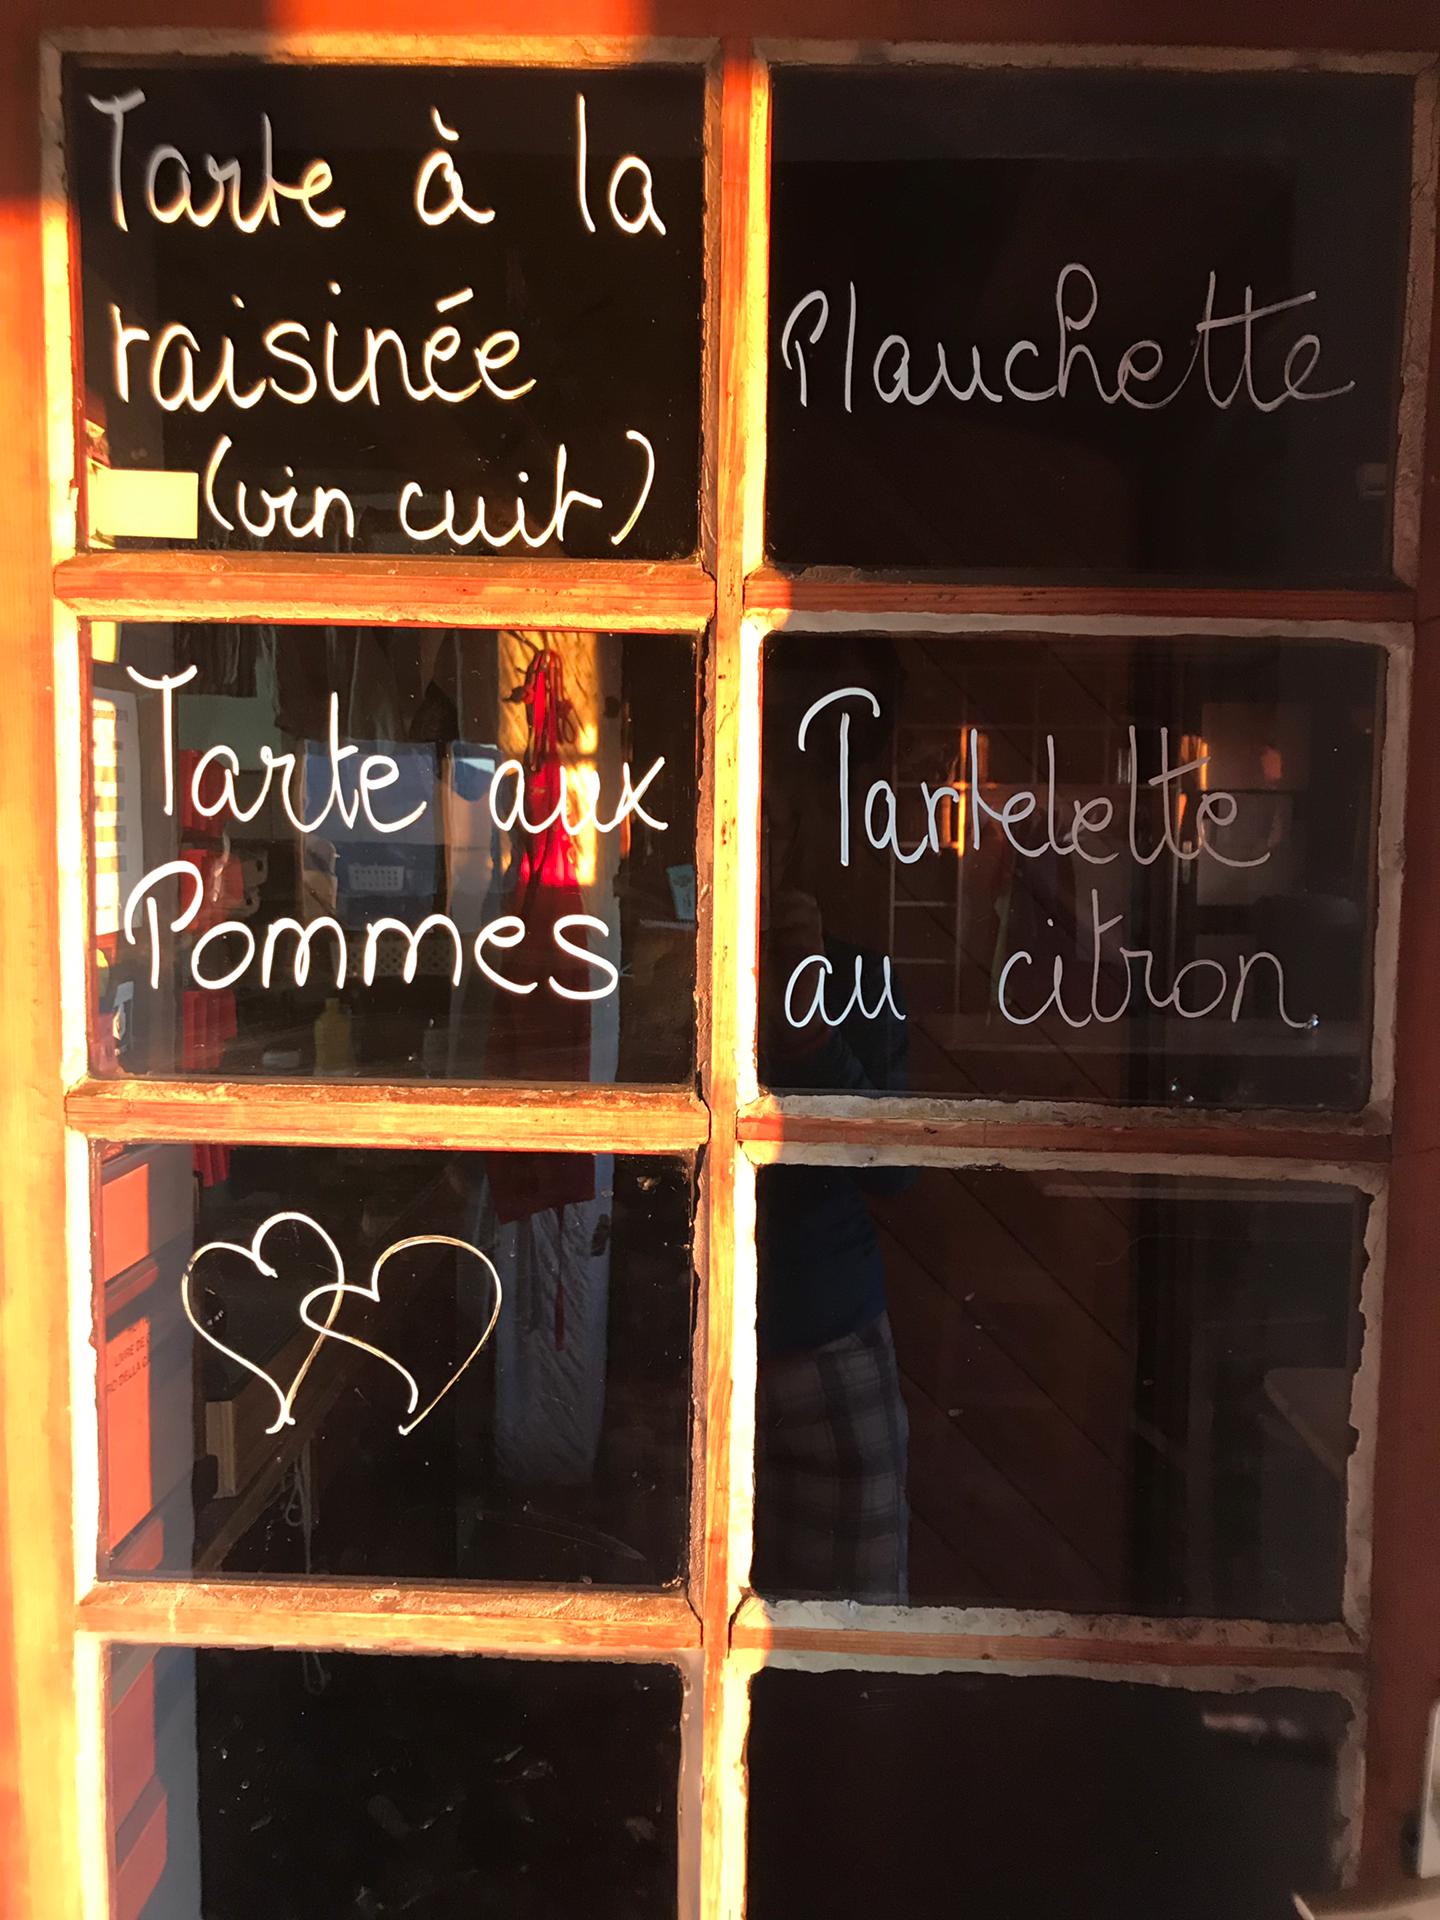 Tarte à la
raisinée
(vin cuit)
Planchette
Tarte aux
Pommes
Tartelette
au citron.
LIVRE DE